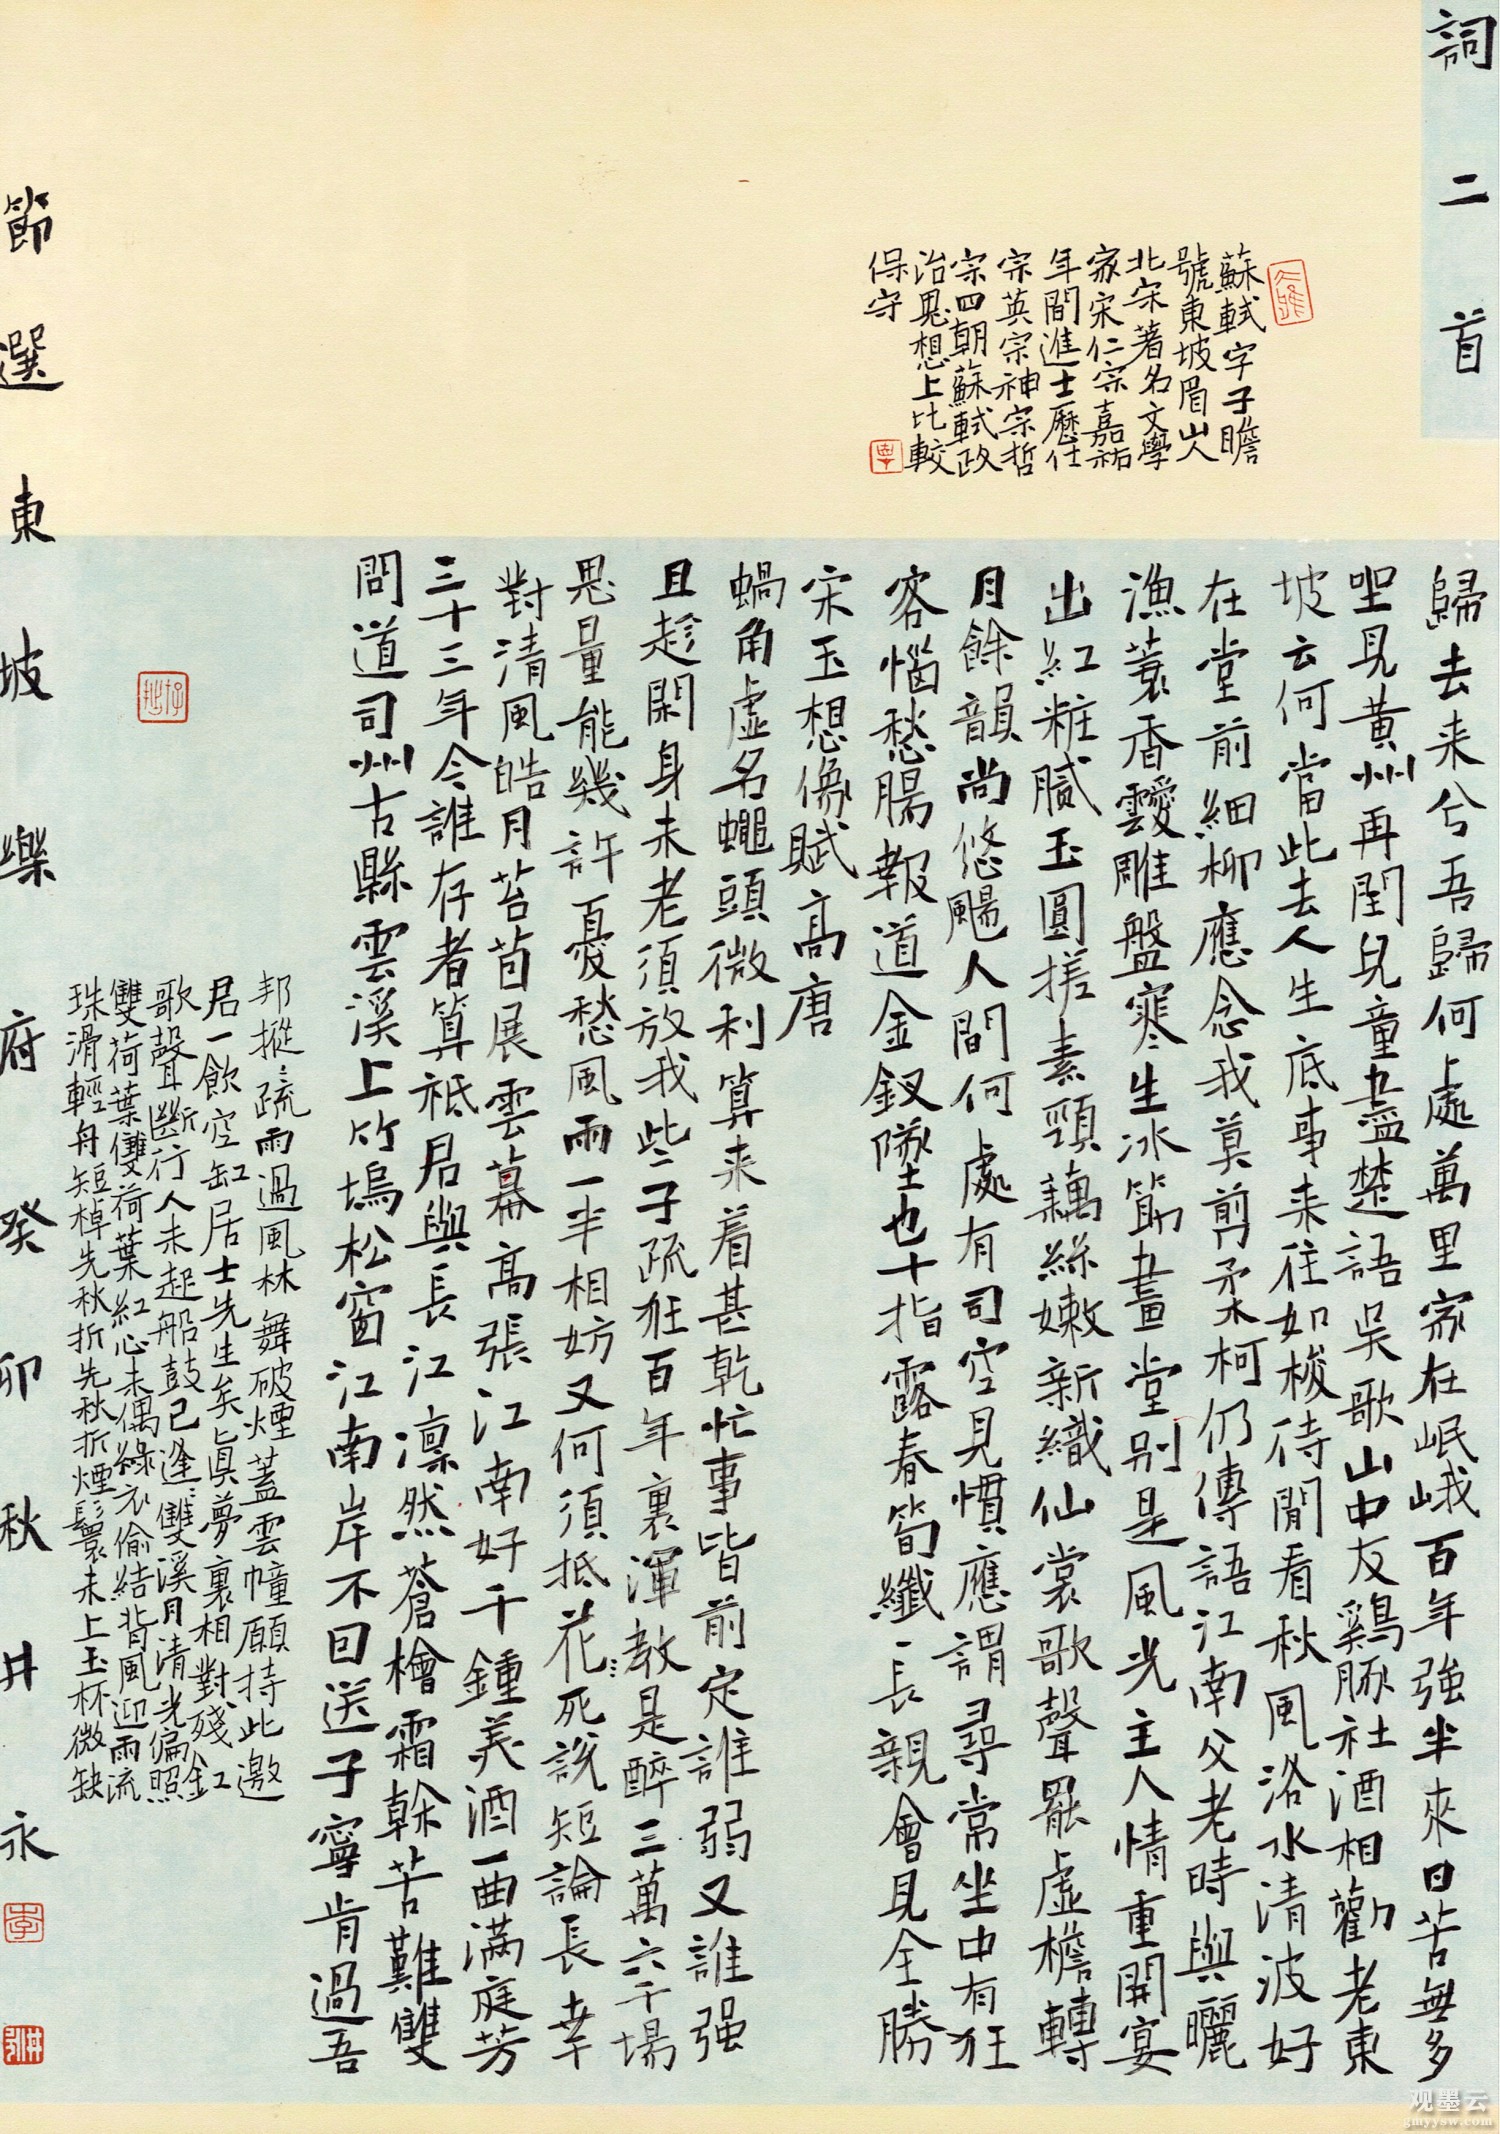 詞二首
蘇軾字子瞻
號東坡眉山人
北宋著名文學
家宋仁宗嘉祐
年間進士歷仕
宗英宗神宗哲
宗四朝蘇軾政
治思想上比較
保守
歸去来兮吾歸何處萬里家在岷峨百年強半來日苦無多
坐見黃州再閏兒童盡楚語吳歌山中友鷄豚社酒相勸老東
坡云何當此去人生底事来往如梭待閒看秋風洛水清波好
在堂前細柳應念我莫剪柔柯仍傳語江南父老時與曬
漁蓑香靉雕盤寒生冰筯畫堂別是風光主人情重開宴
出紅粧膩玉圓搓素頸藕絲嫩新織仙裳歌聲罷虛檐轉
月餘韻尚悠颺人間何處有司空見慣應謂尋常坐中有狂
客惱愁腸報道金釵墜也十指露春筍纖長親會見全勝
宋玉想像賦高唐
蝸角虛名蠅頭微利算来着甚乾忙事皆前定誰弱又誰强
且趁閑身未老須放我些子疏狂百年裏渾教是醉三萬六千場
思量能幾許憂愁風雨一半相妨又何須抵花死說短論長幸
對清風皓月苔茵展雲幕高張江南好千鍾美酒一曲滿庭芳
三十三年今誰存者算祗君與長江凛然蒼檜霜榦苦難雙
問道司州古縣雲溪上竹塢松窗江南岸不回送子寧肯過吾
邦摐摐疏雨過風林舞破煙蓋雲幢願持此邀
君一飲空缸居士先生矣真夢裏相對殘釭
歌聲斷行人未起船鼓已逢逢雙溪月清光偏照
雙荷葉雙荷葉紅心未偶綠衣偷結背風迎雨流
珠滑輕舟短棹先秋折先秋折煙鬟未上玉杯微缺
節選東坡樂府癸卯秋井永
观墨云
gmyysw.com